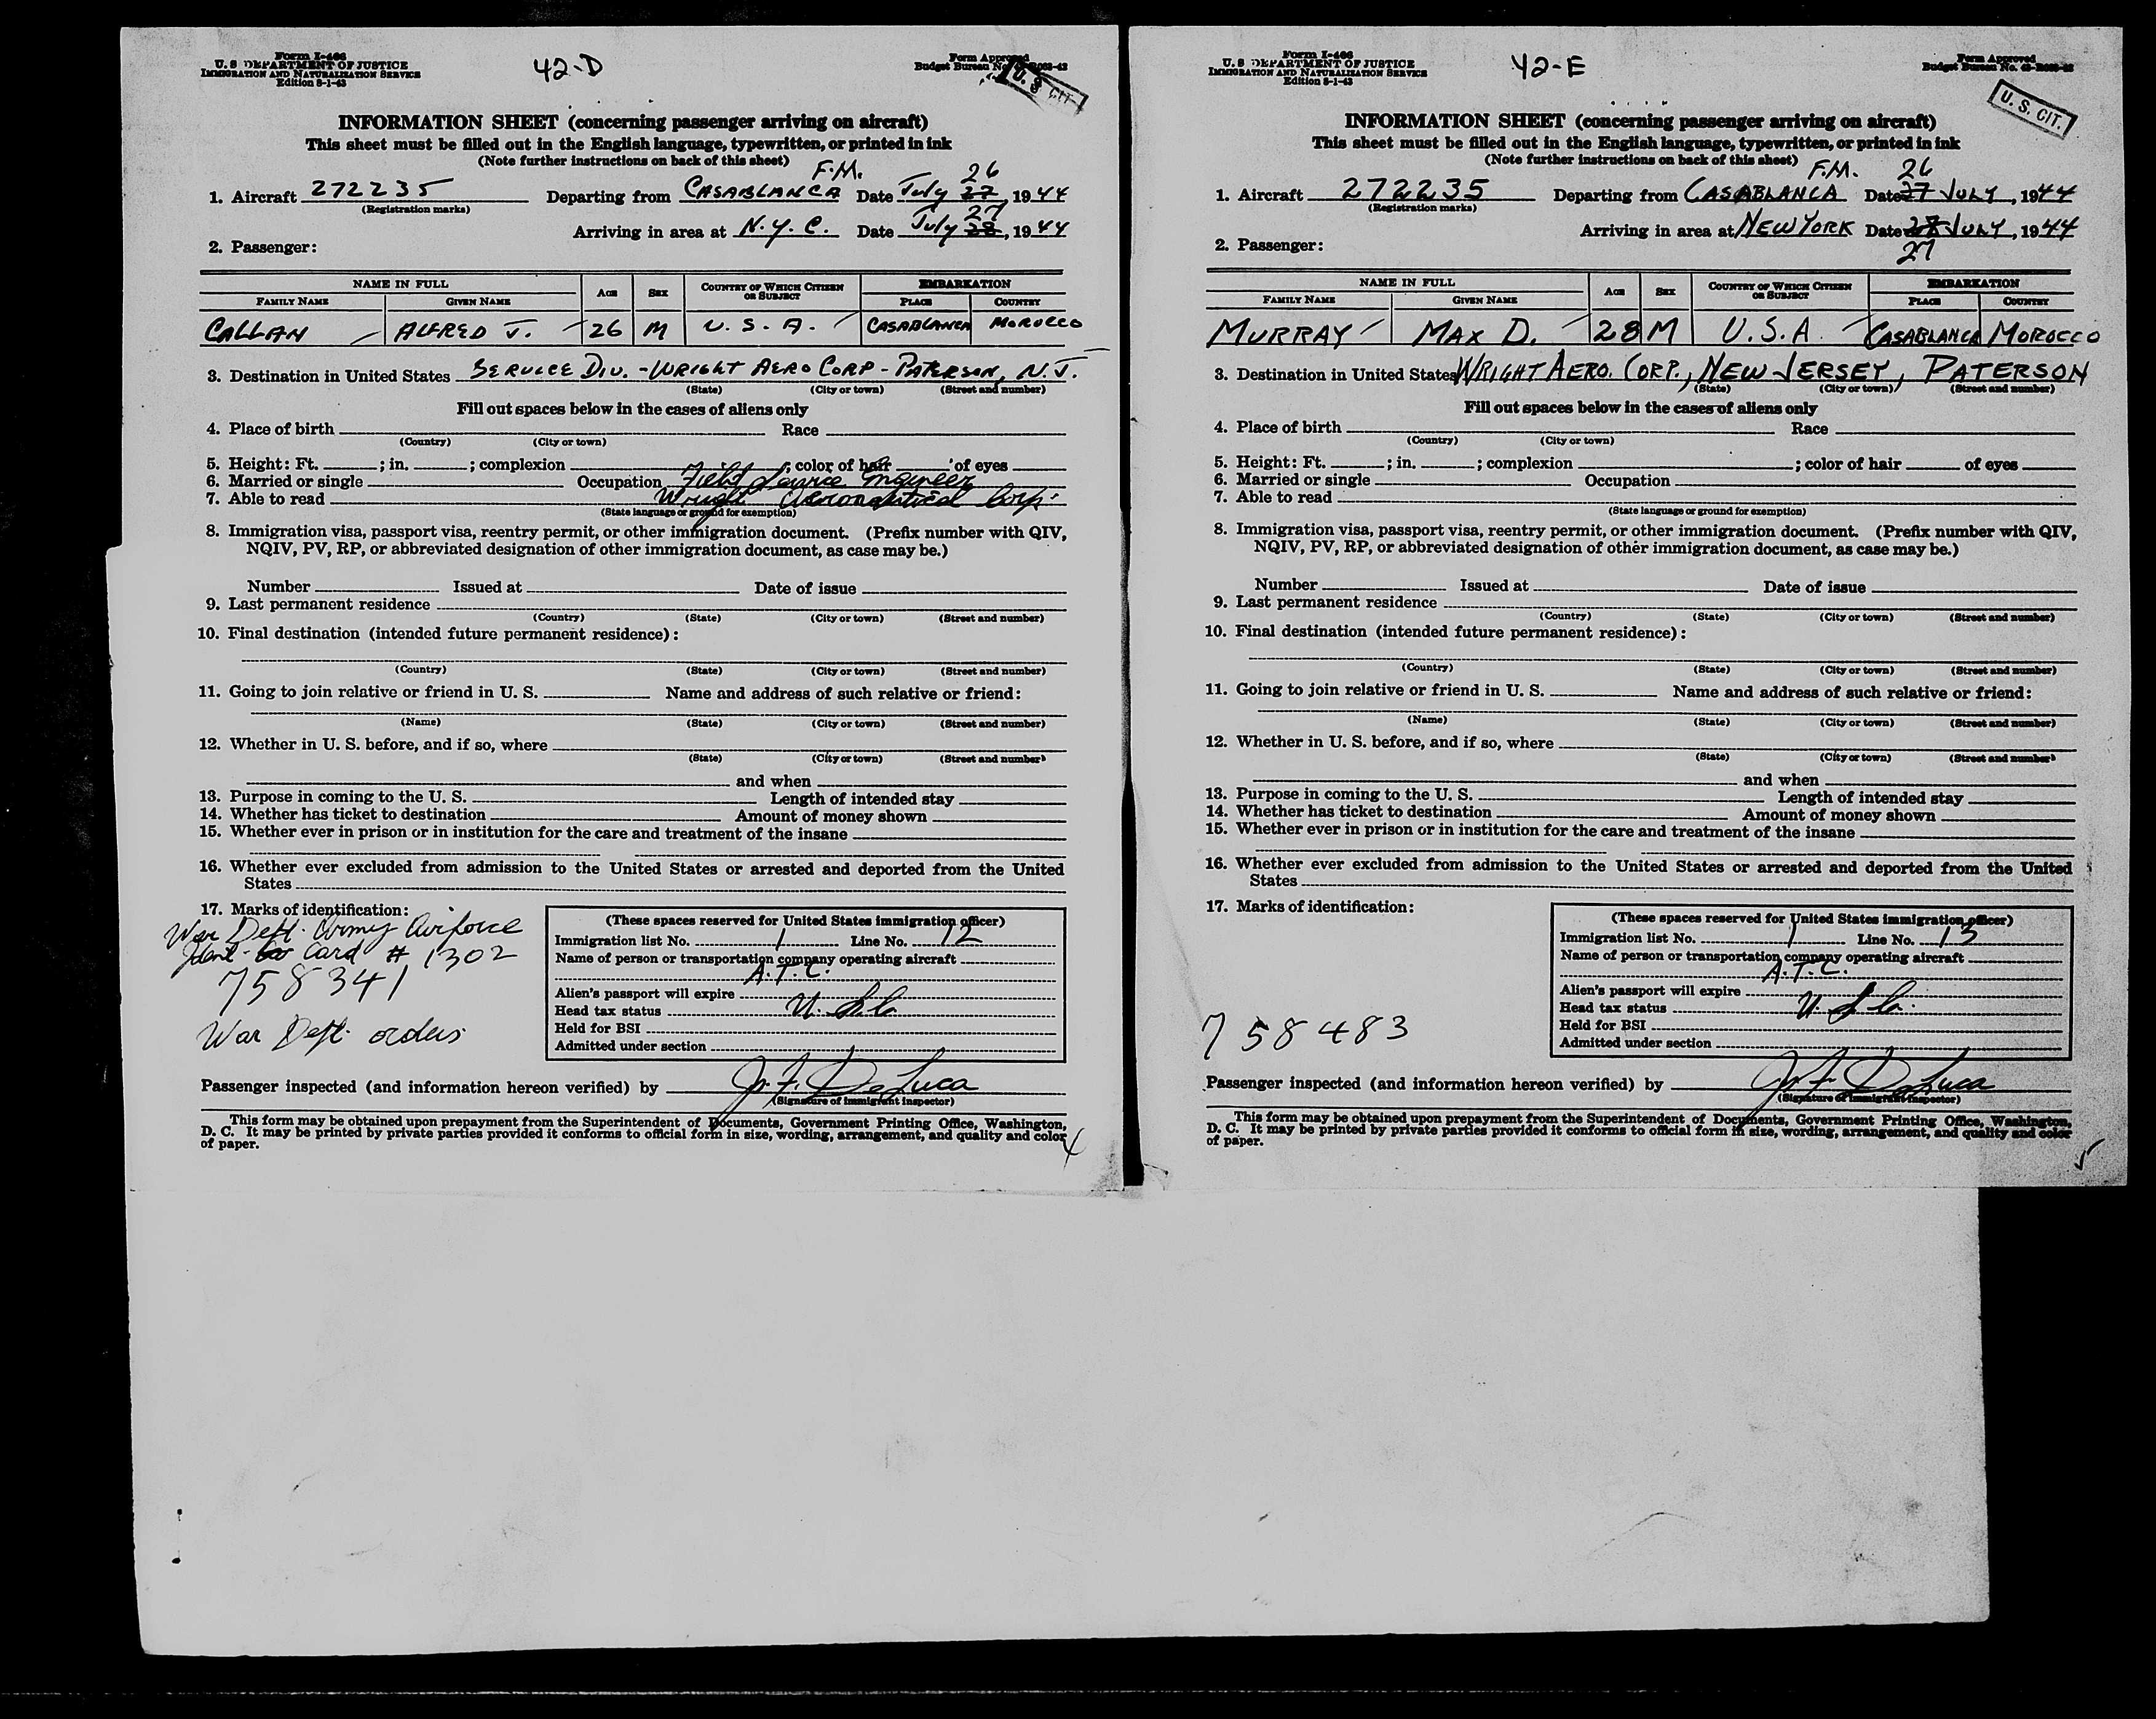 Form I-466
U. S. DEPARTMENT OF JUSTICE
IMMIGRATION AND NATURALIZATION SERVICE
Edition 8-1-43
42-D
Form Approved
Budget Bureau No.
U. S. CIT.
INFORMATION SHEET (concerning passenger arriving on aircraft)
This sheet must be filled out in the English language, typewritten, or printed in ink
(Note further instructions on back of this sheet)
F.M. 26
1. Aircraft 272235 Departing from CASABLANCA Date July 27, 1944
(Registration marks)
27
Arriving in area at N.Y.C. Date July 28, 1944
2. Passenger:
NAME IN FULL AGE SEX COUNTRY OF WHICH CITIZEN OR SUBJECT EMBARKATION
FAMILY NAME GIVEN NAME PLACE COUNTRY
CALLAN ALFRED J. 26 M U. S. A. CASABLANCA MOROCCO
3. Destination in United States SERVICE DIV. - WRIGHT AERO CORP - PATERSON, N. J.
(State) (City or town) (Street and number)
Fill out spaces below in the cases of aliens only
4. Place of birth Race
(Country) (City or town)
5. Height: Ft. ; in. ; complexion ; color of hair of eyes
6. Married or single Occupation Field Service Engineer
7. Able to read Wright Aeronautical Corp.
(State language or ground for exemption)
8. Immigration visa, passport visa, reentry permit, or other immigration document. (Prefix number with QIV,
NQIV, PV, RP, or abbreviated designation of other immigration document, as case may be.)
Number Issued at Date of issue
9. Last permanent residence
(Country) (State) (City or town) (Street and number)
10. Final destination (intended future permanent residence):
(Country) (State) (City or town) (Street and number)
11. Going to join relative or friend in U. S. Name and address of such relative or friend:
(Name) (State) (City or town) (Street and number)
12. Whether in U. S. before, and if so, where
(State) (City or town) (Street and number)
and when
13. Purpose in coming to the U. S. Length of intended stay
14. Whether has ticket to destination Amount of money shown
15. Whether ever in prison or in institution for the care and treatment of the insane
16. Whether ever excluded from admission to the United States or arrested and deported from the United
States
17. Marks of identification:
War Dept. Army Airforce
Ident. Card # 1302
758341
War Dept. orders
(These spaces reserved for United States immigration officer)
Immigration list No. 1 Line No. 12
Name of person or transportation company operating aircraft
A.T.C.
Alien's passport will expire
Head tax status U.S.C.
Held for BSI
Admitted under section
Passenger inspected (and information hereon verified) by J. F. DeLuca
(Signature of immigrant inspector)
This form may be obtained upon prepayment from the Superintendent of Documents, Government Printing Office, Washington,
D. C. It may be printed by private parties provided it conforms to official form in size, wording, arrangement, and quality and color
of paper.
4
Form I-466
U. S. DEPARTMENT OF JUSTICE
IMMIGRATION AND NATURALIZATION SERVICE
Edition 8-1-43
42-E
Form Approved
Budget Bureau No.
U. S. CIT.
INFORMATION SHEET (concerning passenger arriving on aircraft)
This sheet must be filled out in the English language, typewritten, or printed in ink
(Note further instructions on back of this sheet)
F.M. 26
1. Aircraft 272235 Departing from CASABLANCA Date 27 JULY, 1944
(Registration marks)
Arriving in area at NEW YORK Date 28 JULY, 1944
27
2. Passenger:
NAME IN FULL AGE SEX COUNTRY OF WHICH CITIZEN OR SUBJECT EMBARKATION
FAMILY NAME GIVEN NAME PLACE COUNTRY
MURRAY MAX D. 28 M U.S.A. CASABLANCA MOROCCO
3. Destination in United States WRIGHT AERO. CORP., NEW JERSEY, PATERSON
(State) (City or town) (Street and number)
Fill out spaces below in the cases of aliens only
4. Place of birth Race
(Country) (City or town)
5. Height: Ft. ; in. ; complexion ; color of hair of eyes
6. Married or single Occupation
7. Able to read
(State language or ground for exemption)
8. Immigration visa, passport visa, reentry permit, or other immigration document. (Prefix number with QIV,
NQIV, PV, RP, or abbreviated designation of other immigration document, as case may be.)
Number Issued at Date of issue
9. Last permanent residence
(Country) (State) (City or town) (Street and number)
10. Final destination (intended future permanent residence):
(Country) (State) (City or town) (Street and number)
11. Going to join relative or friend in U. S. Name and address of such relative or friend:
(Name) (State) (City or town) (Street and number)
12. Whether in U. S. before, and if so, where
(State) (City or town) (Street and number)
and when
13. Purpose in coming to the U. S. Length of intended stay
14. Whether has ticket to destination Amount of money shown
15. Whether ever in prison or in institution for the care and treatment of the insane
16. Whether ever excluded from admission to the United States or arrested and deported from the United
States
17. Marks of identification:
758483
(These spaces reserved for United States immigration officer)
Immigration list No. 1 Line No. 13
Name of person or transportation company operating aircraft
A.T.C.
Alien's passport will expire
Head tax status U.S.C.
Held for BSI
Admitted under section
Passenger inspected (and information hereon verified) by J. F. DeLuca
(Signature of immigrant inspector)
This form may be obtained upon prepayment from the Superintendent of Documents, Government Printing Office, Washington,
D. C. It may be printed by private parties provided it conforms to official form in size, wording, arrangement, and quality and color
of paper.
5